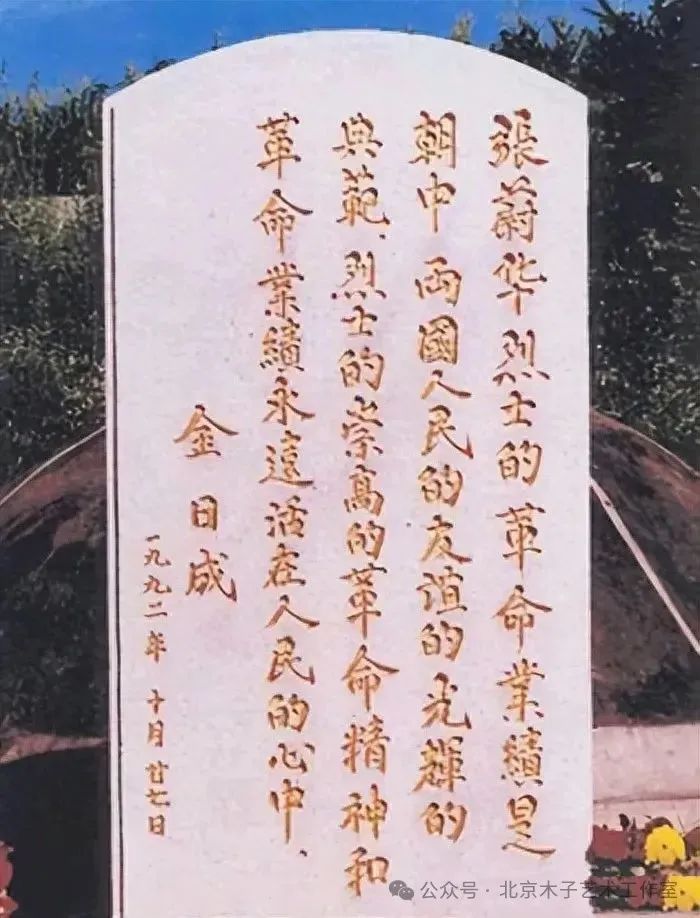 張蔚华烈士的革命業績是
朝中兩國人民的友谊的光輝的
典範．烈士的崇高的革命精神和
革命業績永遠活在人民的心中．
金日成
一九九二年 十月 廿七日
公众号 · 北京木子艺术工作室